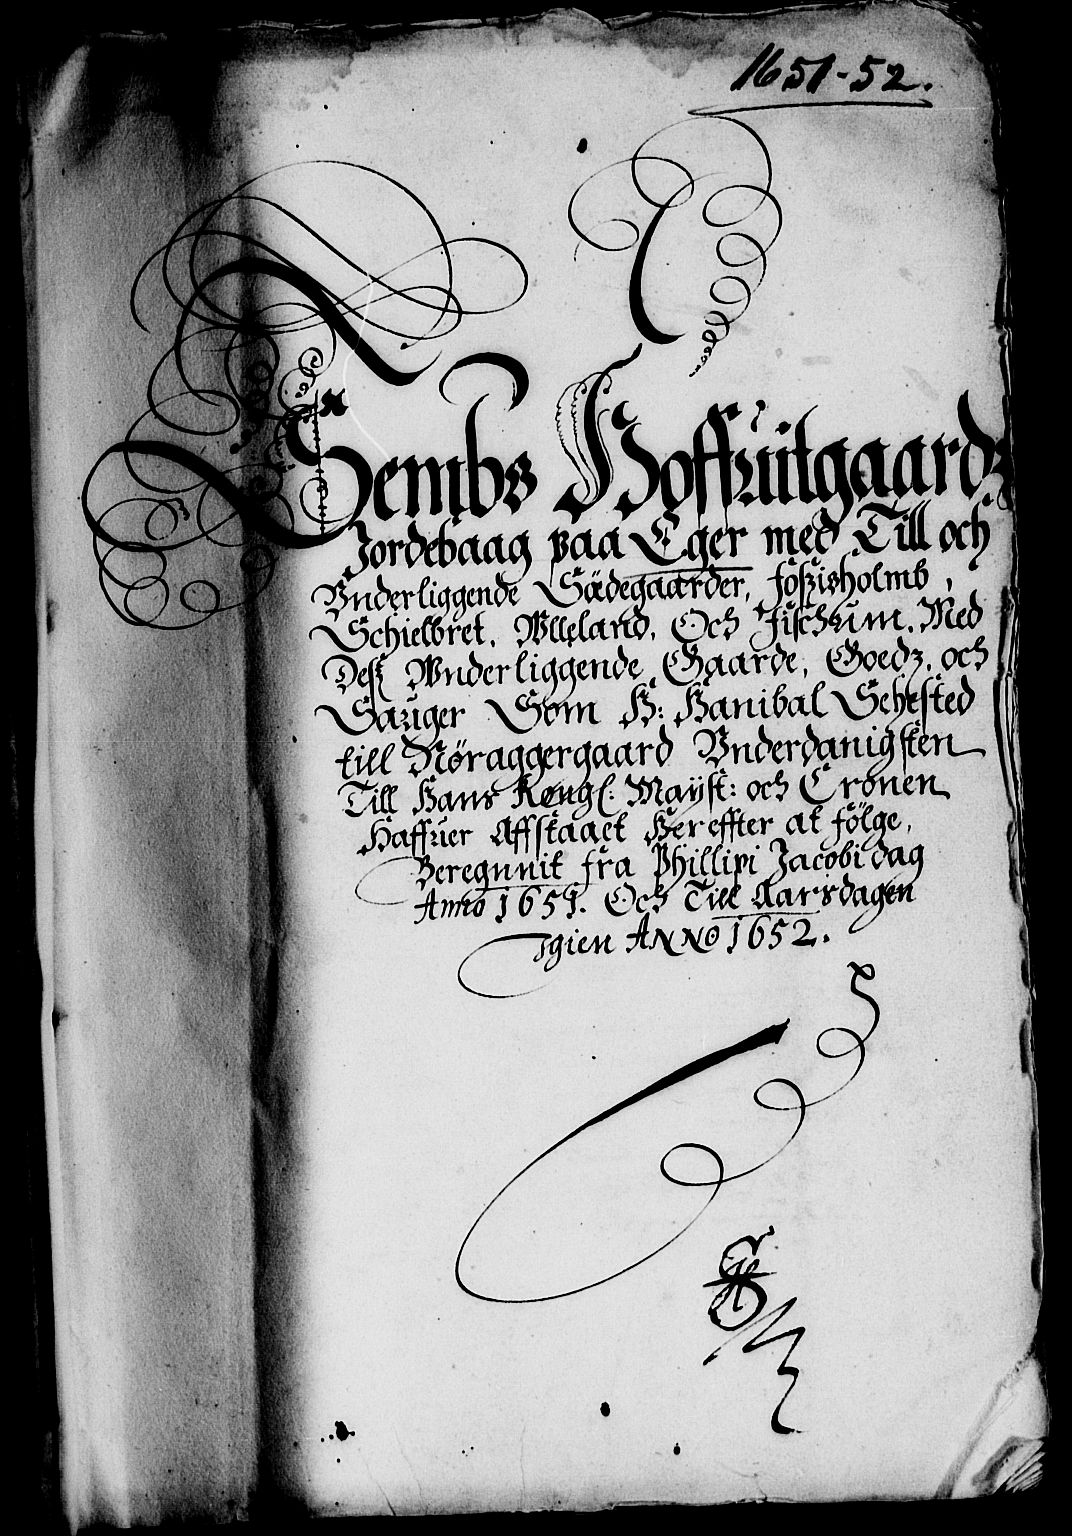 1651-52.
Sembs Hoffuitgaardz
Jordebaag paa Eger med Till och
Vnderliggende Sädegaarder, foszisholmb,
Schielbret, Wlleland, Och Fischum. Med
Desz Wnderliggende Gaarde, Goedz, och
Sauger Som H: Hanibal Sehested
till Nöraggergaard Vnderdanigsten
Till Hans Kongl: Mayst: och Cronen
Haffuer Affstaaet Her effter at fölge,
Beregnnit fra Phillipi Jacobi dag
Anno 1651. Och Till Aarsdagen
Igien ANNO 1652.